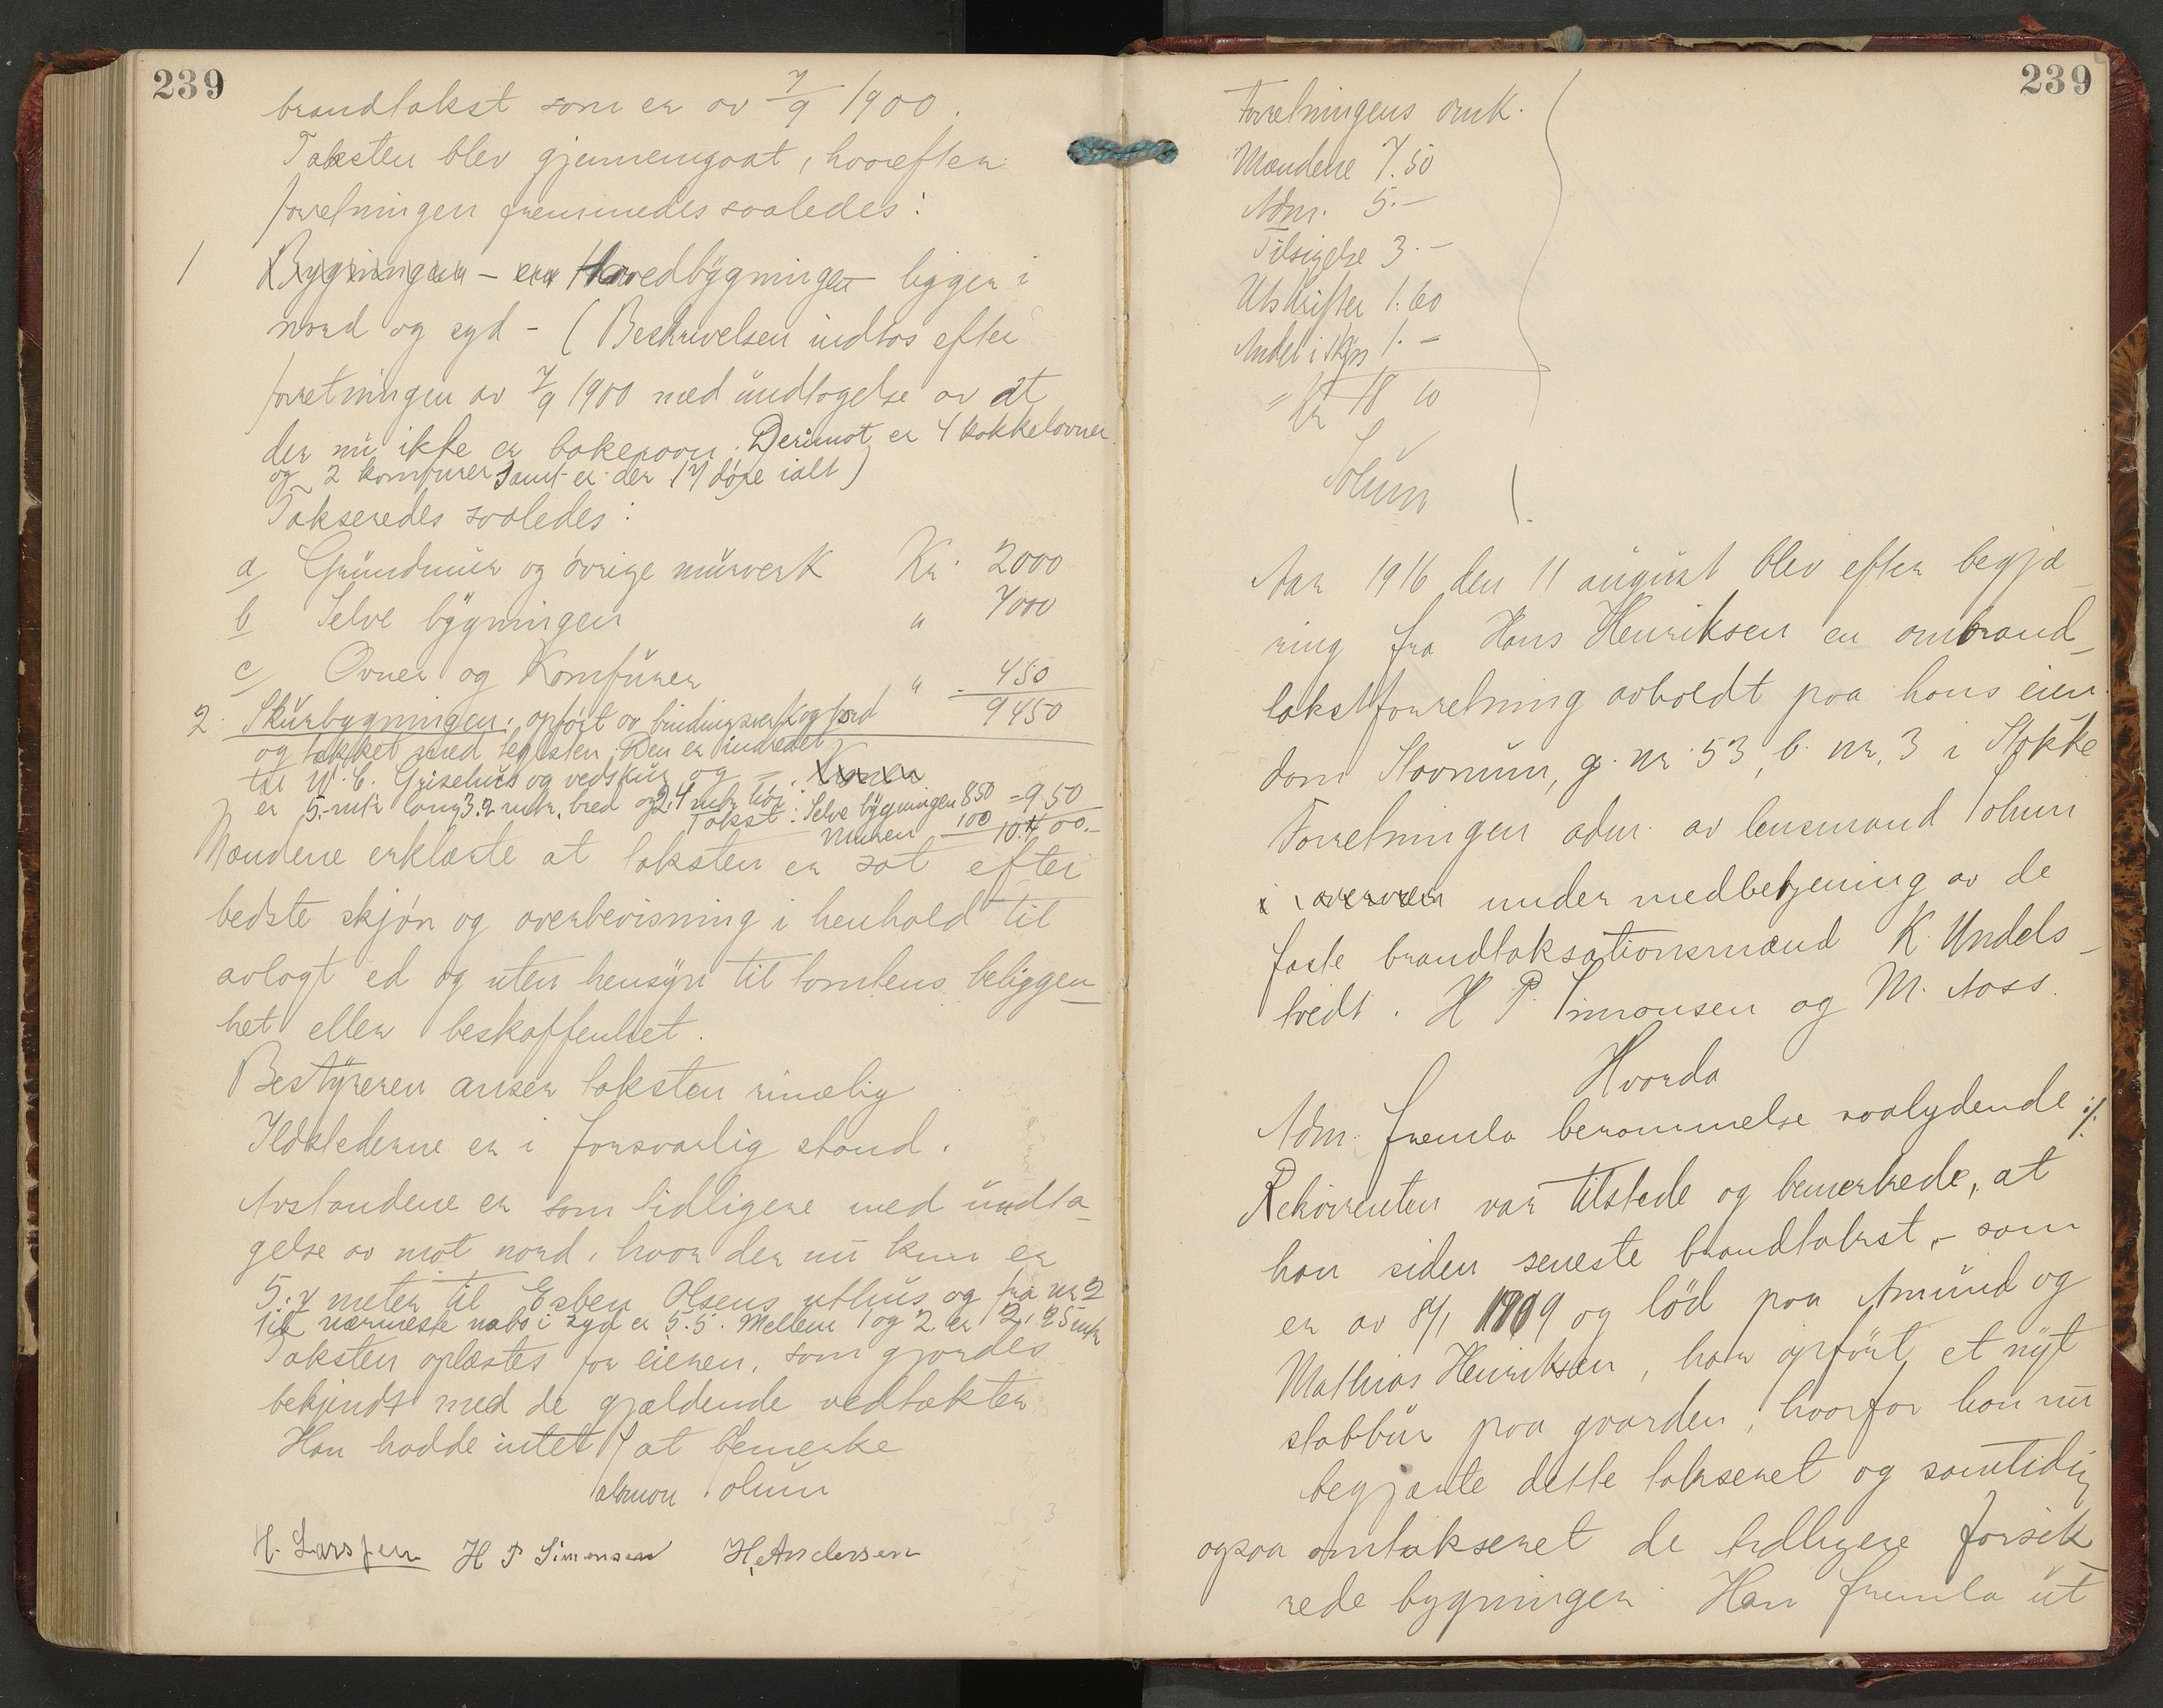 239
brandtakst som er av 7/9 1900.
Taksten blev gjennemgaat, hvorefter
forretningen fremmedes saaledes:
1 Bygningen - en Hovedbygningen ligger i
nord og syd - (Beskrivelsen indtas efter
forretningen av 7/9 1900 med undtagelse av at
der nu ikke er bakerovn. Derimot er 4 kakkelovner
og 2 komfurer samt er der 17 døre ialt)
Takseredes saaledes:
a/ Grundmur og øvrige murverk Kr. 2000
b Selve bygningen " 7000
c/ Ovner og Komfurer " 450
9450
2. Skurbygningen: opført av bindingsverk og bord
og tækket med teglsten. Den er indredet
til W.C. Grisehus og vedskur og
er 5.- mtr lang 3.2 mtr. bred og 2.4 mtr høi
Takst: Selve bygningen 850 = 950
Muren 100 10.400.-
Mændene erklærte at taksten er sat efter
bedste skjøn og overbevisning i henhold til
avlagt ed og uten hensyn til tomtens beliggen-
het eller beskaffenhet.
Bestyreren anser taksten rimelig
Ildstederne er i forsvarlig stand.
Avstandene er som tidligere med undta-
gelse av mot nord, hvor der nu kun er
5.7 meter til Esben Olsens uthus og fra nr 2
til nærmeste nabo i syd er 5.5. Mellem 1 og 2 er 12,25 mtr
Taksten oplæstes for eieren, som gjordes
bekjendt med de gjældende vedtækter
Han hadde intet at bemerke
Solum
H. Larssen H P Simonsen H. Andersen
239
Forretningens omk.
Mændene 7.50
Adm. 5.-
Tilsigelse 3.-
Utskrifter 1.60
Andel i 1.-
= Kr 18 10
Solum
Aar 1916 den 11 august blev efter begjæ-
ring fra Hans Henriksen en ombrand-
takstforretning avholdt paa hans eien-
dom Stavnum, g. nr. 53, b. nr. 3 i Stokke
Forretningen adm. av lensmand Solum
under medbetjening av de
faste brandtaksationsmænd K. Undels-
tvedt. H P. Simonsen og M. Aass.
Hvorda
Adm. fremla berammelse saalydende :/:
Rekvirenten var tilstede og bemerkede, at
han siden seneste brandtakst, - som
er av 8/1 1909 og lød paa Amund og
Mathias Henriksen, har opført et nyt
stabbur paa gaarden, hvorfor han nu
begjærte dette taksert og samtidig
ogsaa omtakseret de tidligere forsik
rede bygninger. Han fremla ut